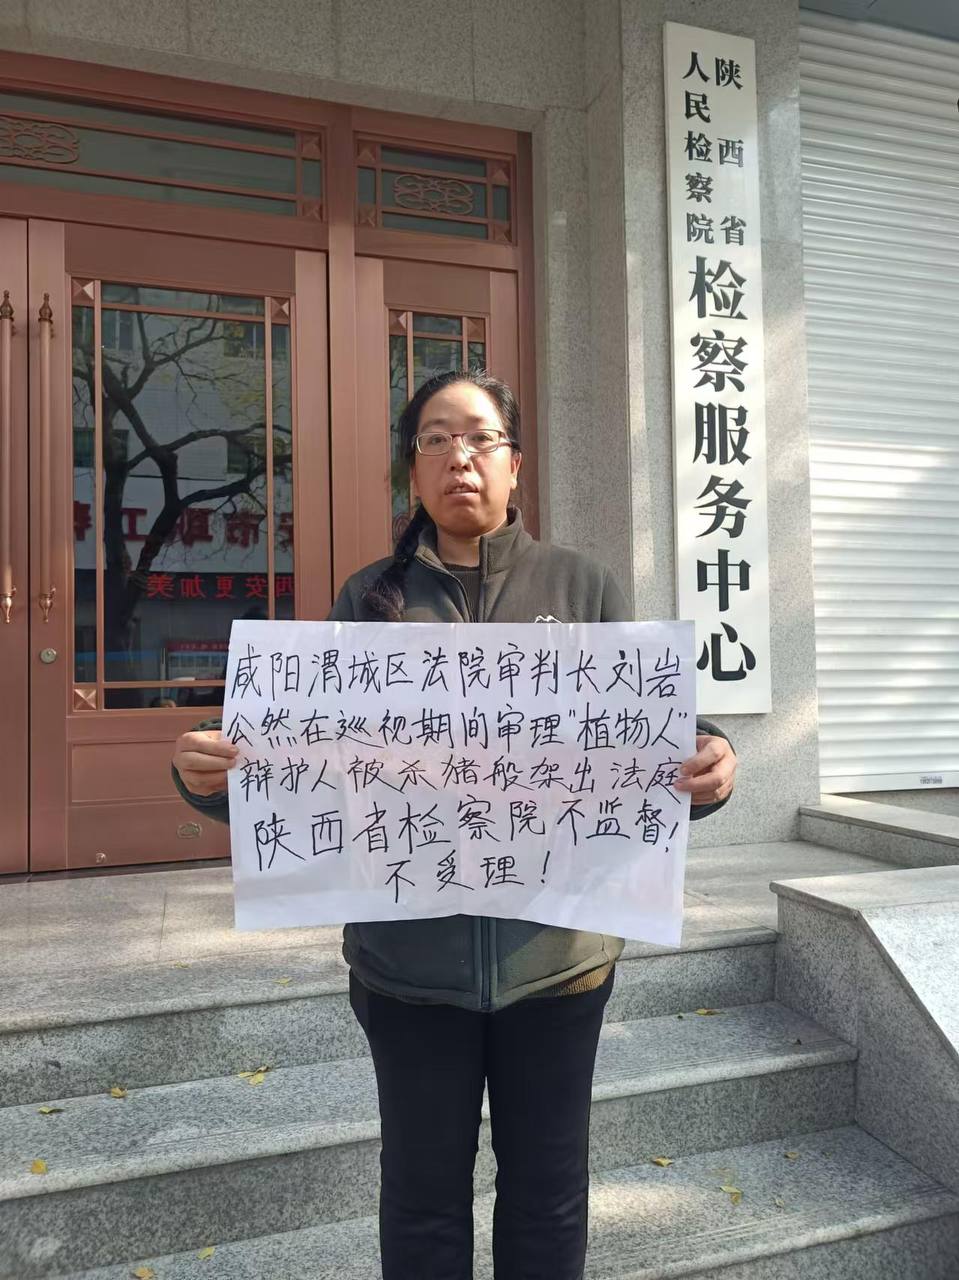 陕西省
人民检察院
检察服务中心
西安更加美
咸阳渭城区法院审判长刘岩
公然在巡视期间审理"植物人"
辩护人被杀猪般架出法庭
陕西省检察院不监督!
不受理!